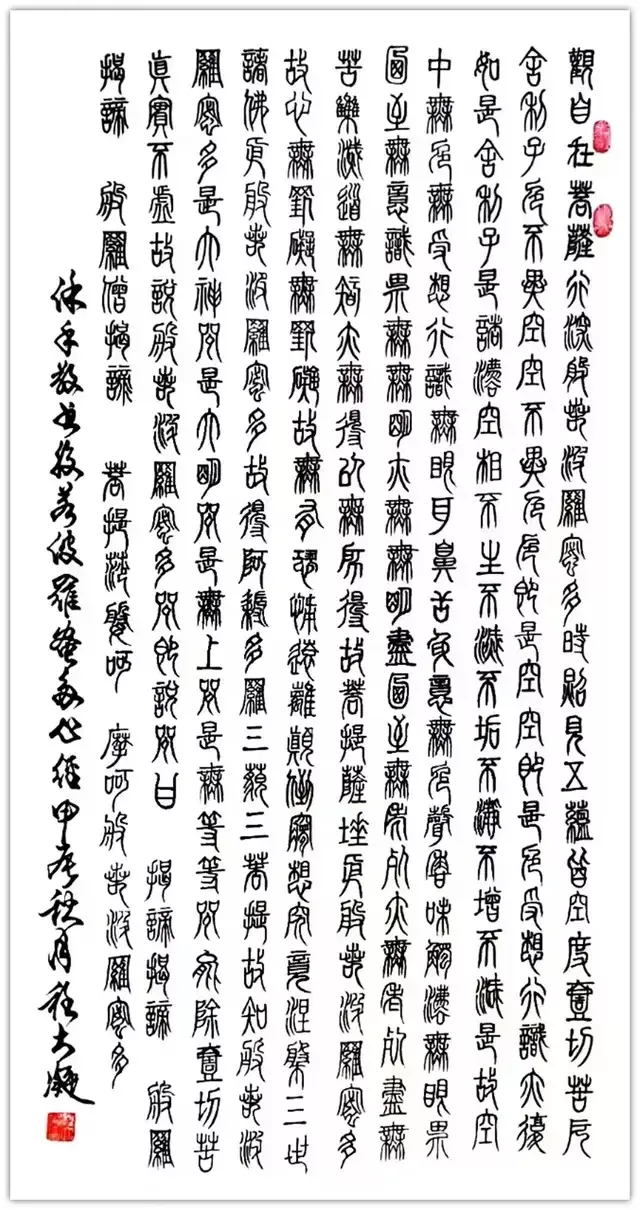 觀自在菩薩行深般若波羅蜜多時照見五蘊皆空度壹切苦厄
舍利子色不異空空不異色色即是空空即是色受想行識亦復
如是舍利子是諸法空相不生不滅不垢不淨不增不減是故空
中無色無受想行識無眼耳鼻舌身意無色聲香味觸法無眼界
乃至無意識界無無明亦無無明盡乃至無老死亦無老死盡無
苦集滅道無智亦無得以無所得故菩提薩埵依般若波羅蜜多
故心無罣礙無罣礙故無有恐怖遠離顛倒夢想究竟涅槃三世
諸佛依般若波羅蜜多故得阿耨多羅三藐三菩提故知般若波
羅蜜多是大神咒是大明咒是無上咒是無等等咒能除壹切苦
真實不虛故說般若波羅蜜多咒即說咒曰 揭諦揭諦 般羅
揭諦 般羅僧揭諦 菩提薩婆呵 摩呵般若波羅蜜多
敬書般若波羅蜜多心經甲辰秋月